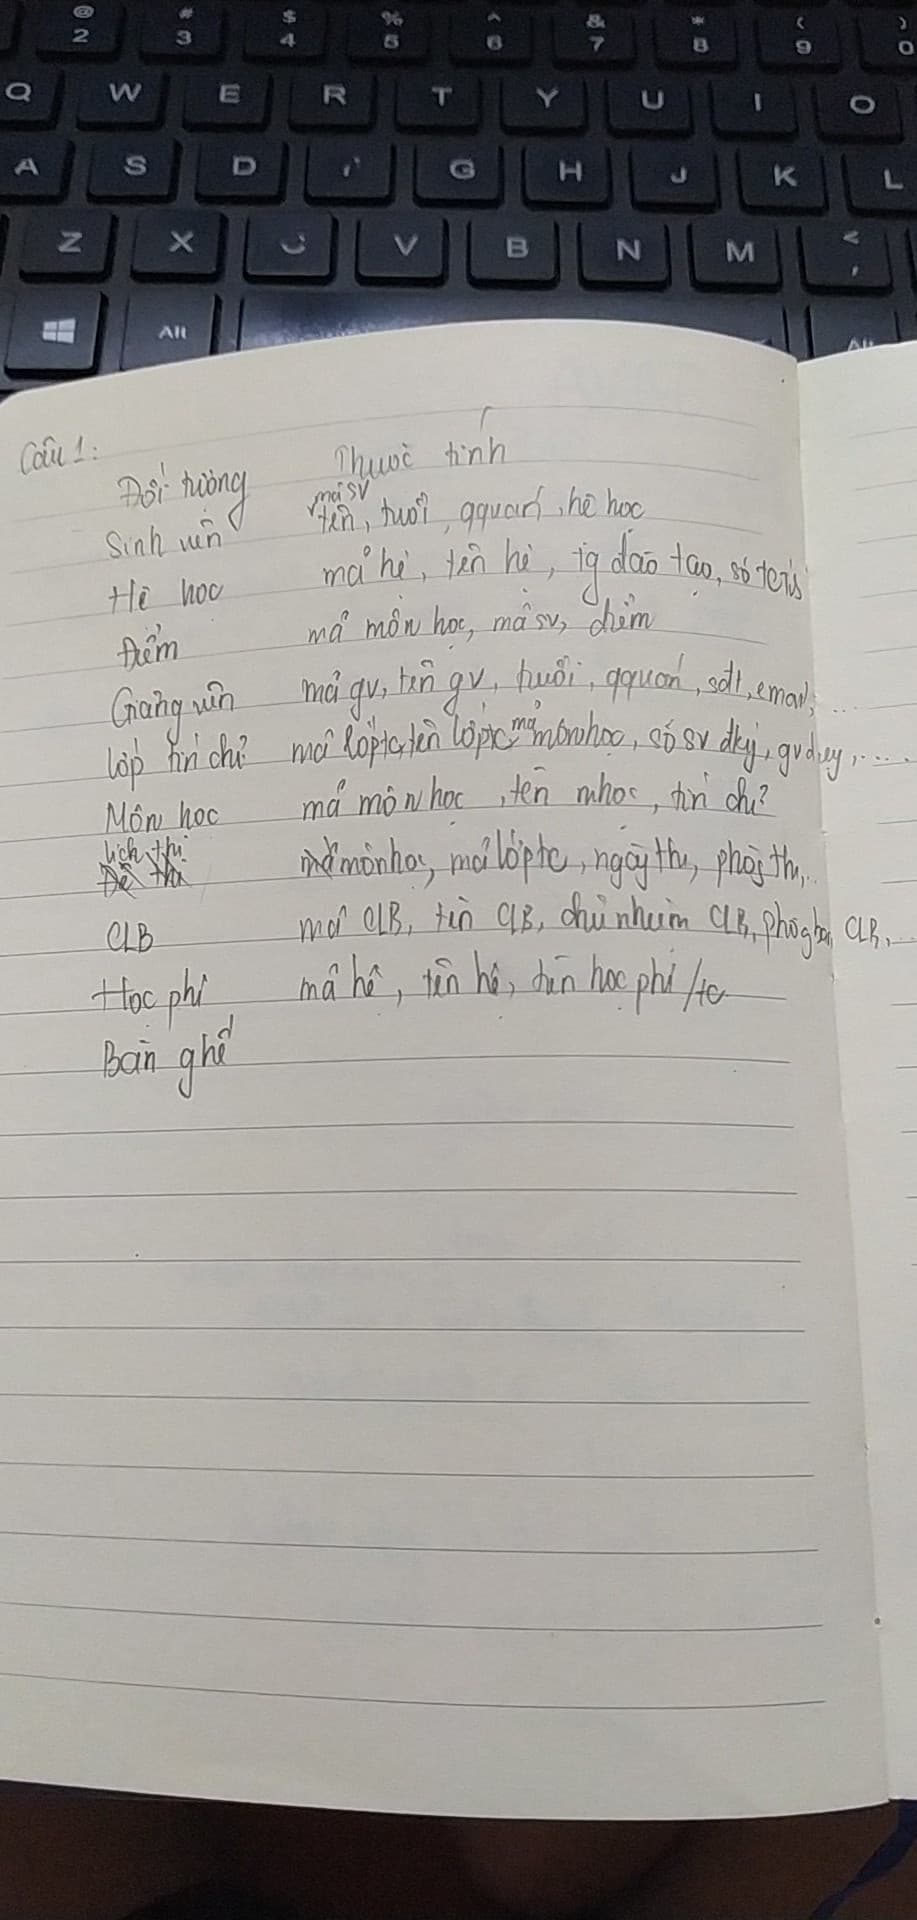 @ # $ % ^ & * ( )
2 3 4 5 6 7 8 9 0
Q W E R T Y U I O
A S D G H J K L
Z X V B N M <
,
Alt
Câu 1:
Đối tượng Thuộc tính
mã sv
Sinh viên tên, tuổi, qquán, hệ học
Hệ học mã hệ, tên hệ, tg đào tạo, số
Điểm mã môn học, mã sv, điểm
Giảng viên mã gv, tên gv, tuổi, qquán, sđt, email, ...
Lớp tín chỉ mã lớptc, tên lớptc, mã mônhọc, số sv đký, gv dạy, ....
Môn học mã môn học, tên mhọc, tín chỉ
Lịch thi
Đề thi mã mônhọc, mã lớptc, ngày thi, phòg thi, ..
CLB mã CLB, tên CLB, chủ nhiệm CLB, CLB, ..
Học phí mã hệ, tên hệ, tiền học phí/tc
Bàn ghế